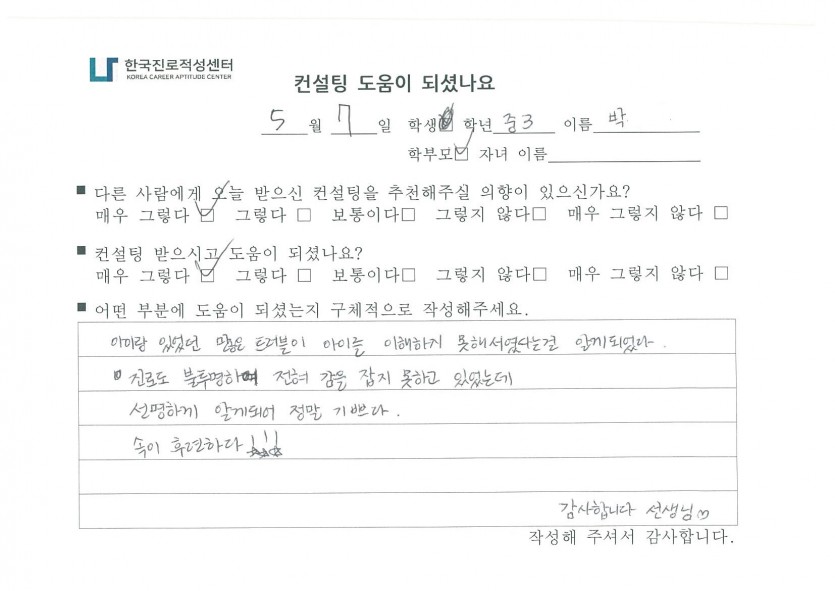 한국진로적성센터
KOREA CAREER APTITUDE CENTER
컨설팅 도움이 되셨나요
5 월 7 일 학생☐ 학년 중3 이름 박
학부모☑ 자녀 이름
■ 다른 사람에게 오늘 받으신 컨설팅을 추천해주실 의향이 있으신가요?
매우 그렇다 ☑ 그렇다 ☐ 보통이다☐ 그렇지 않다☐ 매우 그렇지 않다 ☐
■ 컨설팅 받으시고 도움이 되셨나요?
매우 그렇다 ☑ 그렇다 ☐ 보통이다☐ 그렇지 않다☐ 매우 그렇지 않다 ☐
■ 어떤 부분에 도움이 되셨는지 구체적으로 작성해주세요.
아이랑 있었던 많은 트러블이 아이를 이해하지 못해서였다는걸 알게되었다.
진로도 불투명하여 전혀 감을 잡지 못하고 있었는데
선명하게 알게되어 정말 기쁘다.
속이 후련하다!!!
감사합니다 선생님♡
작성해 주셔서 감사합니다.